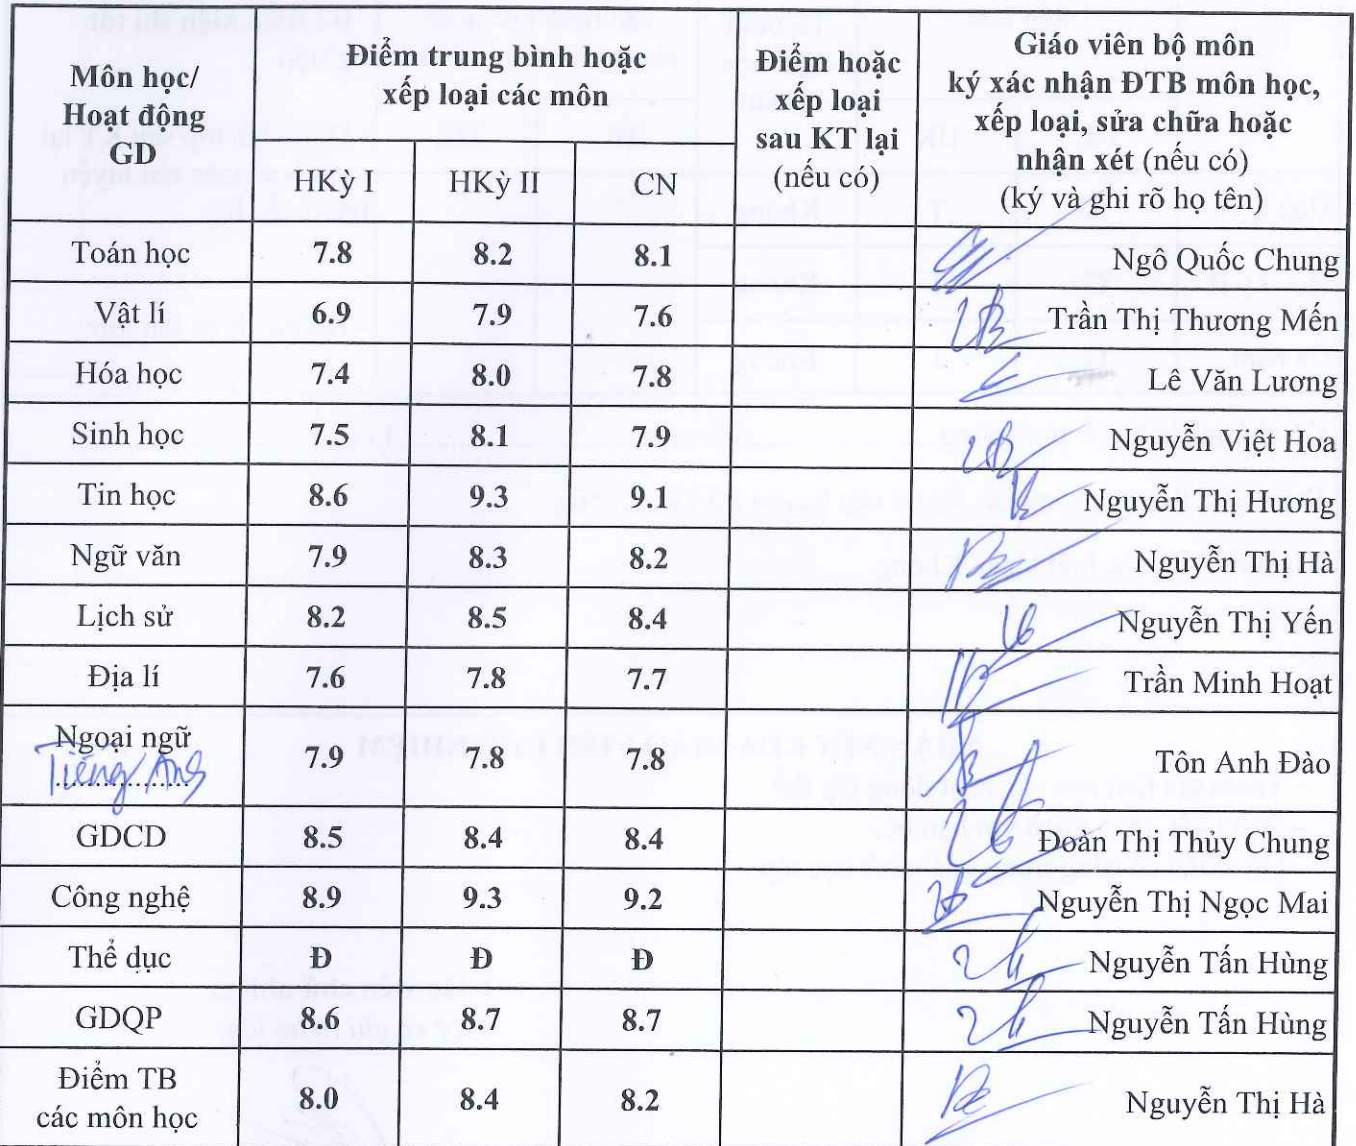 Môn học/
Hoạt động
GD
Điểm trung bình hoặc
xếp loại các môn
HKỳ I HKỳ II CN
Điểm hoặc
xếp loại
sau KT lại
(nếu có)
Giáo viên bộ môn
ký xác nhận ĐTB môn học,
xếp loại, sửa chữa hoặc
nhận xét (nếu có)
(ký và ghi rõ họ tên)
Toán học 7.8 8.2 8.1 Ngô Quốc Chung
Vật lí 6.9 7.9 7.6 Trần Thị Thương Mến
Hóa học 7.4 8.0 7.8 Lê Văn Lương
Sinh học 7.5 8.1 7.9 Nguyễn Việt Hoa
Tin học 8.6 9.3 9.1 Nguyễn Thị Hương
Ngữ văn 7.9 8.3 8.2 Nguyễn Thị Hà
Lịch sử 8.2 8.5 8.4 Nguyễn Thị Yến
Địa lí 7.6 7.8 7.7 Trần Minh Hoạt
Ngoại ngữ
Tiếng Anh 7.9 7.8 7.8 Tôn Anh Đào
GDCD 8.5 8.4 8.4 Đoàn Thị Thủy Chung
Công nghệ 8.9 9.3 9.2 Nguyễn Thị Ngọc Mai
Thể dục Đ Đ Đ Nguyễn Tấn Hùng
GDQP 8.6 8.7 8.7 Nguyễn Tấn Hùng
Điểm TB
các môn học 8.0 8.4 8.2 Nguyễn Thị Hà